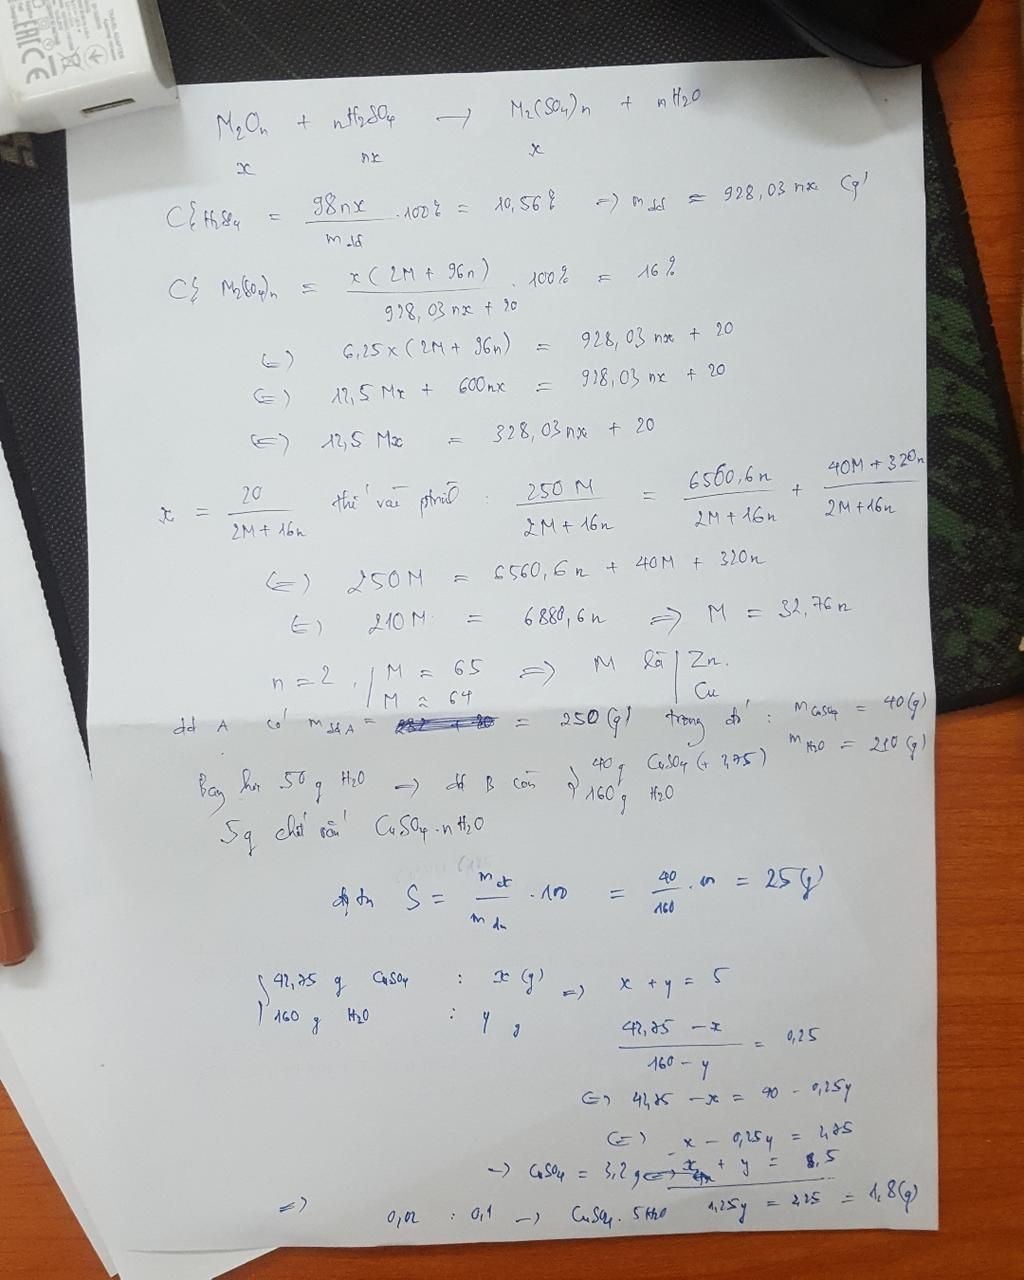 TRAVEL ADAPTER
EAC CE
M₂Oₙ + nH₂SO₄ → M₂(SO₄)n + nH₂O
x nx x
C% H₂SO₄ = 98nx / m dd . 100% = 10,56% => m dd = 928,03 nx (g)
C% M₂(SO₄)n = x(2M + 96n) / 928,03 nx + 20 . 100% = 16%
<=> 6,25x(2M + 96n) = 928,03 nx + 20
<=> 12,5 Mx + 600nx = 928,03 nx + 20
<=> 12,5 Mx = 328,03 nx + 20
x = 20 / 2M + 16n thế vào ptrình : 250 M / 2M + 16n = 6560,6n / 2M + 16n + 40M + 320n / 2M + 16n
<=> 250M = 6560,6n + 40M + 320n
<=> 210M = 6880,6n => M = 32,76n
n = 2 . | M = 65 => M là | Zn.
M ≈ 64 Cu
dd A có m dd A = = 250(g) trong đó : m CuSO₄ = 40(g)
m H₂O = 210(g)
Bay hơi 50 g H₂O => dd B còn { 40g CuSO₄ (+ 2,75)
160g H₂O
5g chất rắn CuSO₄.nH₂O
độ tan S = m ct / m dm . 100 = 40 / 160 . 100 = 25(g)
{ 42,75 g CuSO₄ : x (g) => x + y = 5
160 g H₂O : y g
42,75 - x / 160 - y = 0,25
<=> 42,75 - x = 40 - 0,25y
<=> x - 0,25y = 2,75
-> CuSO₄ = 3,2g x + y = 5
=> 0,02 : 0,1 -> CuSO₄.5H₂O 1,25y = 2,25 = 1,8(g)